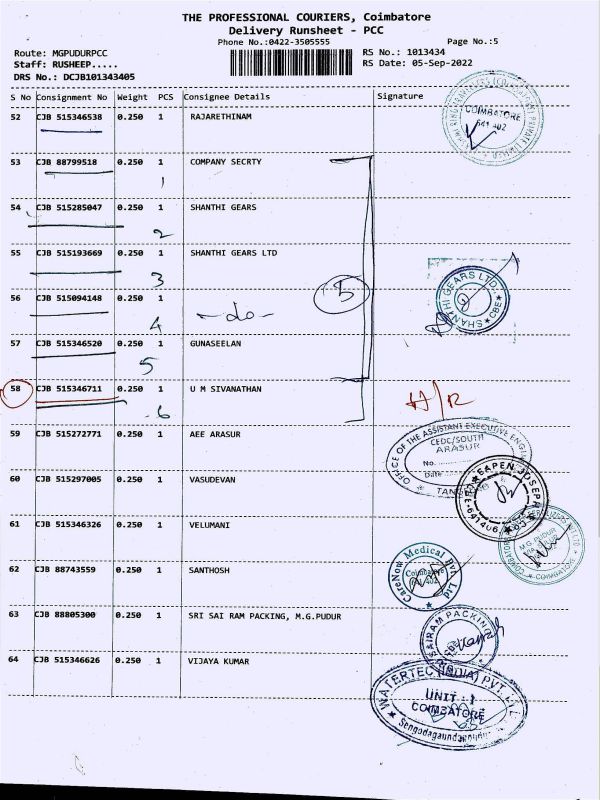 THE PROFESSIONAL COURIERS, Coimbatore
Delivery Runsheet - PCC
Phone No.:0422-3505555 Page No.:5
Route: MGPUDURPCC RS No.: 1013434
Staff: RUSHEEP..... RS Date: 05-Sep-2022
DRS No.: DCJB101343405
S No Consignment No Weight PCS Consignee Details Signature
52 CJB 515346538 0.250 1 RAJARETHINAM
COIMBATORE
641 402
53 CJB 88799518 0.250 1 COMPANY SECRTY
1
54 CJB 515285047 0.250 1 SHANTHI GEARS
2
55 CJB 515193669 0.250 1 SHANTHI GEARS LTD
3
5
SHANTHI GEARS LTD. CBE
56 CJB 515094148 0.250 1 -do-
4
57 CJB 515346520 0.250 1 GUNASEELAN
5
58 CJB 515346711 0.250 1 U M SIVANATHAN
6
H/R
59 CJB 515272771 0.250 1 AEE ARASUR
OFFICE OF THE ASSISTANT EXECUTIVE
CEDC/SOUTH
ARASUR
No. ..............
Date
60 CJB 515297005 0.250 1 VASUDEVAN
EAPEN JOSEPH
641406
61 CJB 515346326 0.250 1 VELUMANI
M.G. PUDUR
COIMBATORE
62 CJB 88743559 0.250 1 SANTHOSH
CareNow Medical Pvt. Ltd
Coimbatore
63 CJB 88805300 0.250 1 SRI SAI RAM PACKING, M.G.PUDUR
SAIRAM PACKING
64 CJB 515346626 0.250 1 VIJAYA KUMAR
WATERTEC (INDIA) PVT. LTD.
UNIT - I
COIMBATORE